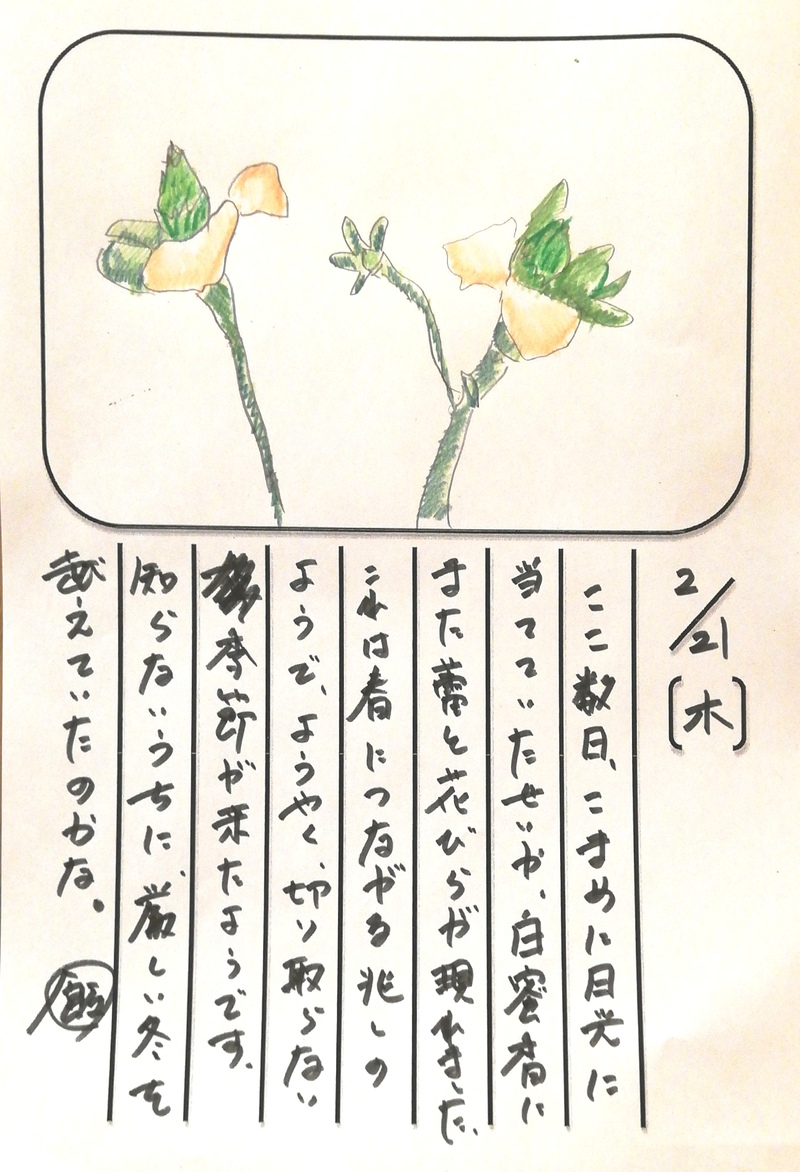 2/21〔木〕
ここ数日、こまめに日光に
当てていたせいか、白蜜香に
また蕾と花びらが現れました。
これは春につながる兆しの
ようで、ようやく、切り取らない
季節が来たようです。
知らないうちに、厳しい冬を
越えていたのかな。